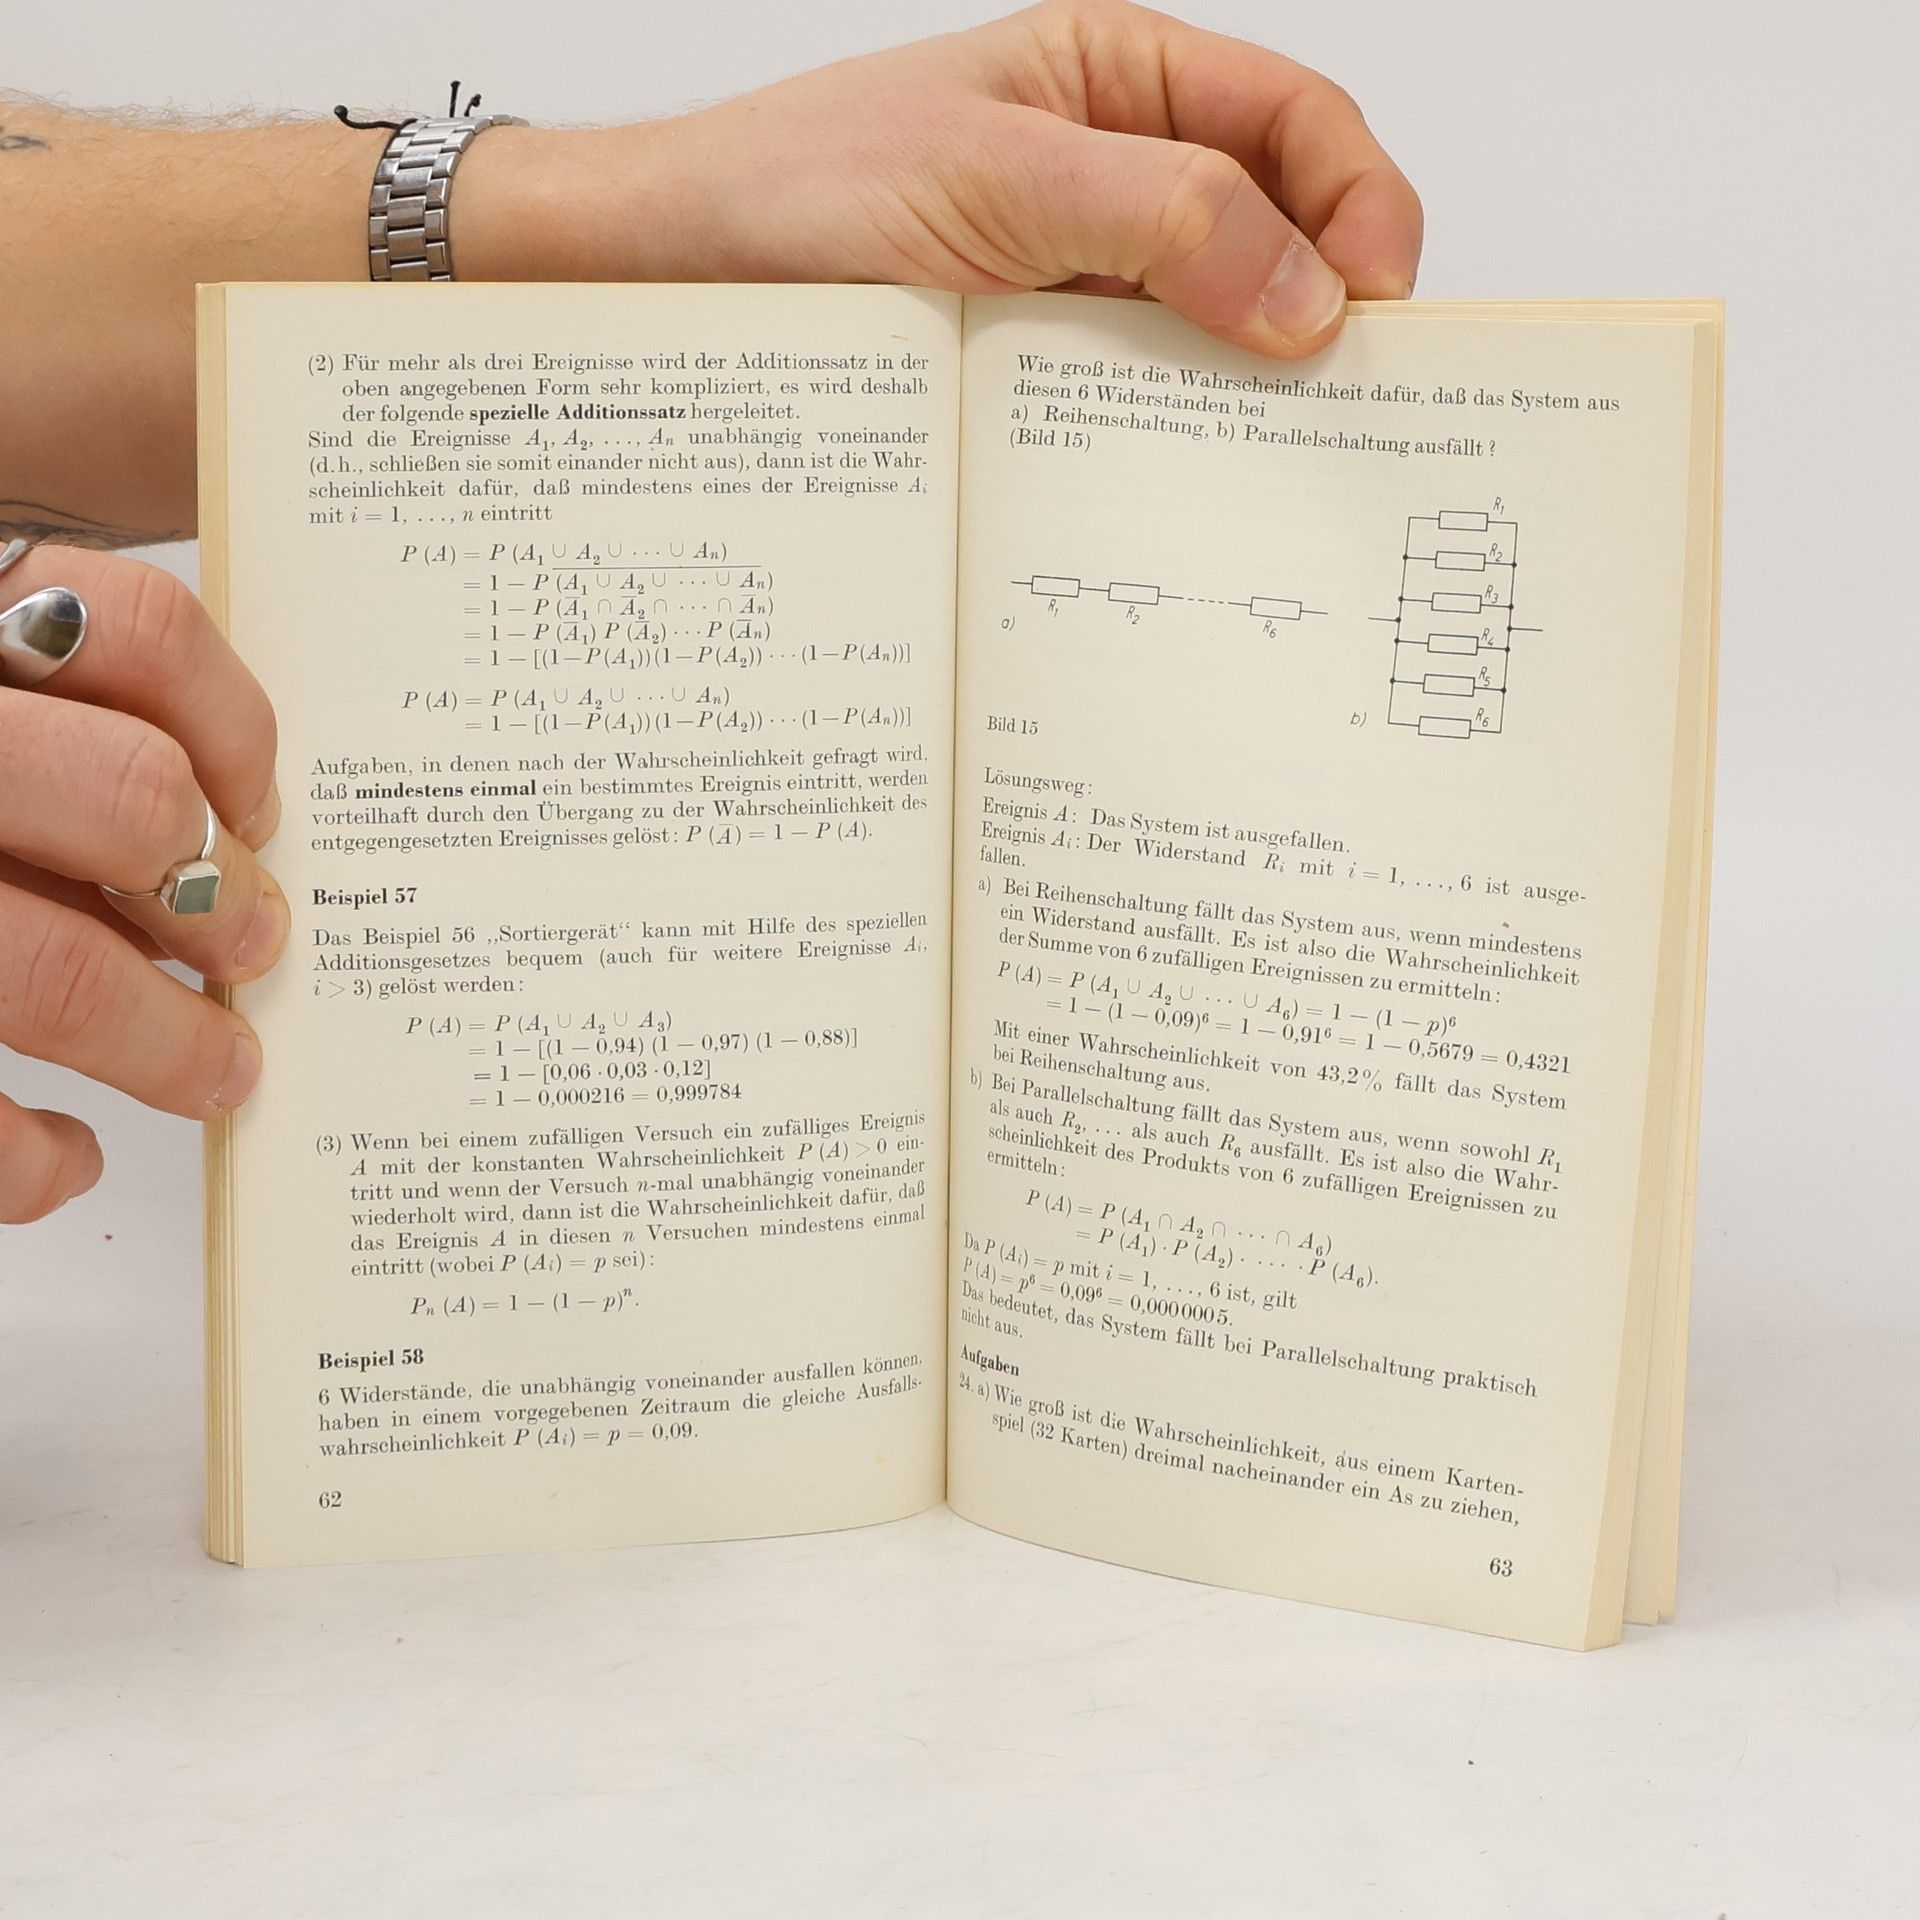 (2) Für mehr als drei Ereignisse wird der Additionssatz in der
oben angegebenen Form sehr kompliziert, es wird deshalb
der folgende spezielle Additionssatz hergeleitet.
Sind die Ereignisse A₁, A₂, ..., Aₙ unabhängig voneinander
(d.h., schließen sie somit einander nicht aus), dann ist die Wahr-
scheinlichkeit dafür, daß mindestens eines der Ereignisse Aᵢ
mit i = 1, ..., n eintritt
P (A) = P (A₁ ∪ A₂ ∪ ··· ∪ Aₙ)
= 1 − P (A̅₁ ̅∪̅ A̅₂ ̅∪̅ ·̅·̅·̅ ∪̅ A̅ₙ)
= 1 − P (A̅₁ ∩ A̅₂ ∩ ··· ∩ A̅ₙ)
= 1 − P (A̅₁) P (A̅₂) ··· P (A̅ₙ)
= 1 − [(1−P(A₁))(1−P(A₂)) ··· (1−P(Aₙ))]
P (A) = P (A₁ ∪ A₂ ∪ ··· ∪ Aₙ)
= 1 − [(1−P(A₁))(1−P(A₂)) ··· (1−P(Aₙ))]
Aufgaben, in denen nach der Wahrscheinlichkeit gefragt wird,
daß mindestens einmal ein bestimmtes Ereignis eintritt, werden
vorteilhaft durch den Übergang zu der Wahrscheinlichkeit des
entgegengesetzten Ereignisses gelöst: P (A̅) = 1 − P (A).
Beispiel 57
Das Beispiel 56 „Sortiergerät“ kann mit Hilfe des speziellen
Additionsgesetzes bequem (auch für weitere Ereignisse Aᵢ,
i > 3) gelöst werden:
P (A) = P (A₁ ∪ A₂ ∪ A₃)
= 1 − [(1 − 0,94) (1 − 0,97) (1 − 0,88)]
= 1 − [0,06 · 0,03 · 0,12]
= 1 − 0,000216 = 0,999784
(3) Wenn bei einem zufälligen Versuch ein zufälliges Ereignis
A mit der konstanten Wahrscheinlichkeit P (A) > 0 ein-
tritt und wenn der Versuch n-mal unabhängig voneinander
wiederholt wird, dann ist die Wahrscheinlichkeit dafür, daß
das Ereignis A in diesen n Versuchen mindestens einmal
eintritt (wobei P (Aᵢ) = p sei):
Pₙ (A) = 1 − (1 − p)ⁿ.
Beispiel 58
6 Widerstände, die unabhängig voneinander ausfallen können,
haben in einem vorgegebenen Zeitraum die gleiche Ausfalls-
wahrscheinlichkeit P (Aᵢ) = p = 0,09.
62
Wie groß ist die Wahrscheinlichkeit dafür, daß das System aus
diesen 6 Widerständen bei
a) Reihenschaltung, b) Parallelschaltung ausfällt?
(Bild 15)
R₁
R₂
R₆
a)
R₁
R₂
R₃
R₄
R₅
R₆
b)
Bild 15
Lösungsweg:
Ereignis A: Das System ist ausgefallen.
Ereignis Aᵢ: Der Widerstand Rᵢ mit i = 1, ..., 6 ist ausge-
fallen.
a) Bei Reihenschaltung fällt das System aus, wenn mindestens
ein Widerstand ausfällt. Es ist also die Wahrscheinlichkeit
der Summe von 6 zufälligen Ereignissen zu ermitteln:
P (A) = P (A₁ ∪ A₂ ∪ ... ∪ A₆) = 1 − (1 − p)⁶
= 1 − (1 − 0,09)⁶ = 1 − 0,91⁶ = 1 − 0,5679 = 0,4321
Mit einer Wahrscheinlichkeit von 43,2% fällt das System
bei Reihenschaltung aus.
b) Bei Parallelschaltung fällt das System aus, wenn sowohl R₁
als auch R₂, ... als auch R₆ ausfällt. Es ist also die Wahr-
scheinlichkeit des Produkts von 6 zufälligen Ereignissen zu
ermitteln:
P (A) = P (A₁ ∩ A₂ ∩ ··· ∩ A₆)
= P (A₁) · P (A₂) · ... · P (A₆).
Da P (Aᵢ) = p mit i = 1, ..., 6 ist, gilt
P (A) = p⁶ = 0,09⁶ = 0,0000005.
Das bedeutet, das System fällt bei Parallelschaltung praktisch
nicht aus.
Aufgaben
24. a) Wie groß ist die Wahrscheinlichkeit, aus einem Karten-
spiel (32 Karten) dreimal nacheinander ein As zu ziehen,
63